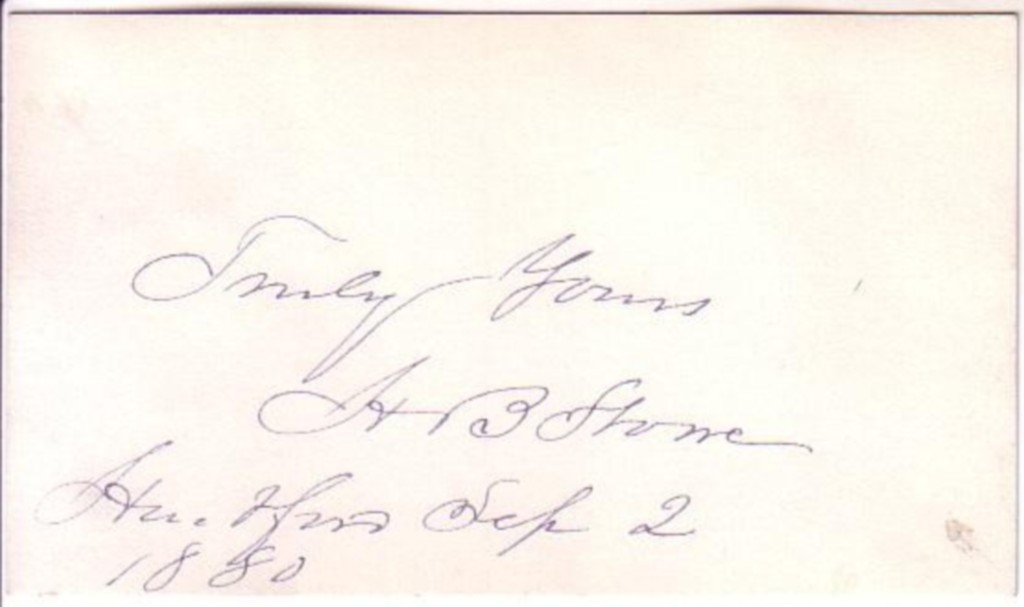 Truly Yours
H B Stowe
Sep 2
1880